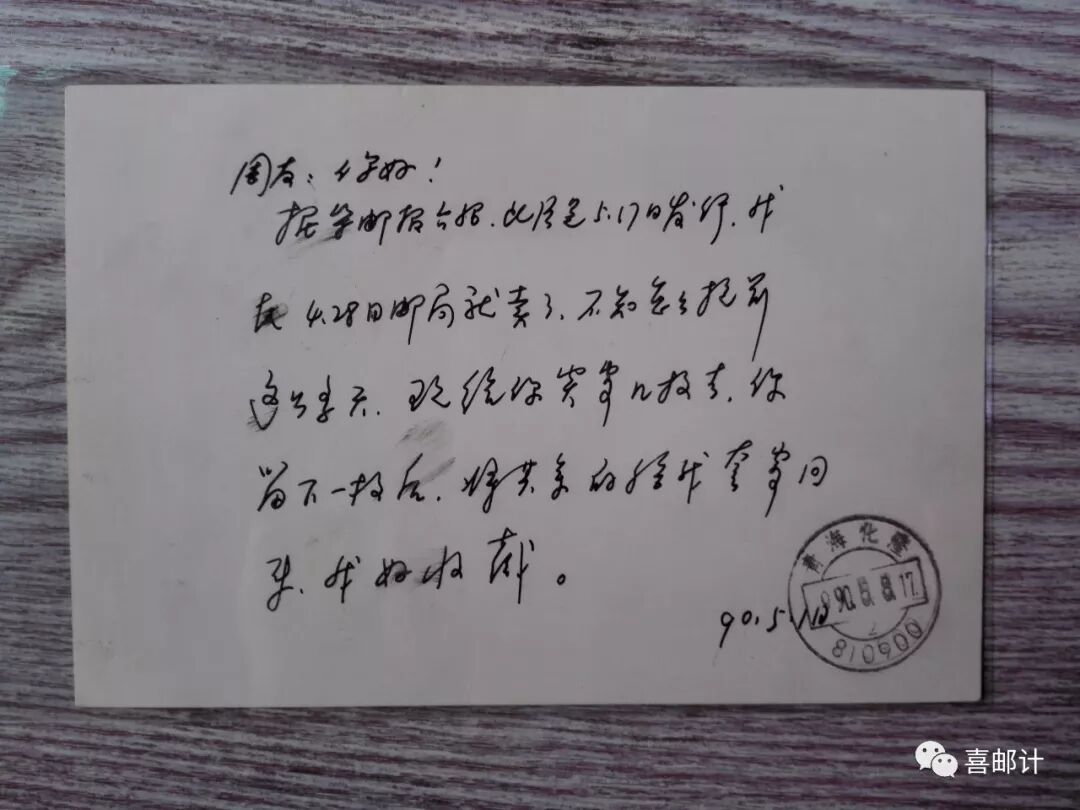 周友:你好!
据集邮报介绍,此片是5.17日发行,我
在4.28日邮局就卖了,不知怎么提前
这么多天,现给你实寄几枚去,你
留下一枚后,将其余的给我套寄回
来,我好收藏。
90.5.
青海化隆
810900
喜邮计